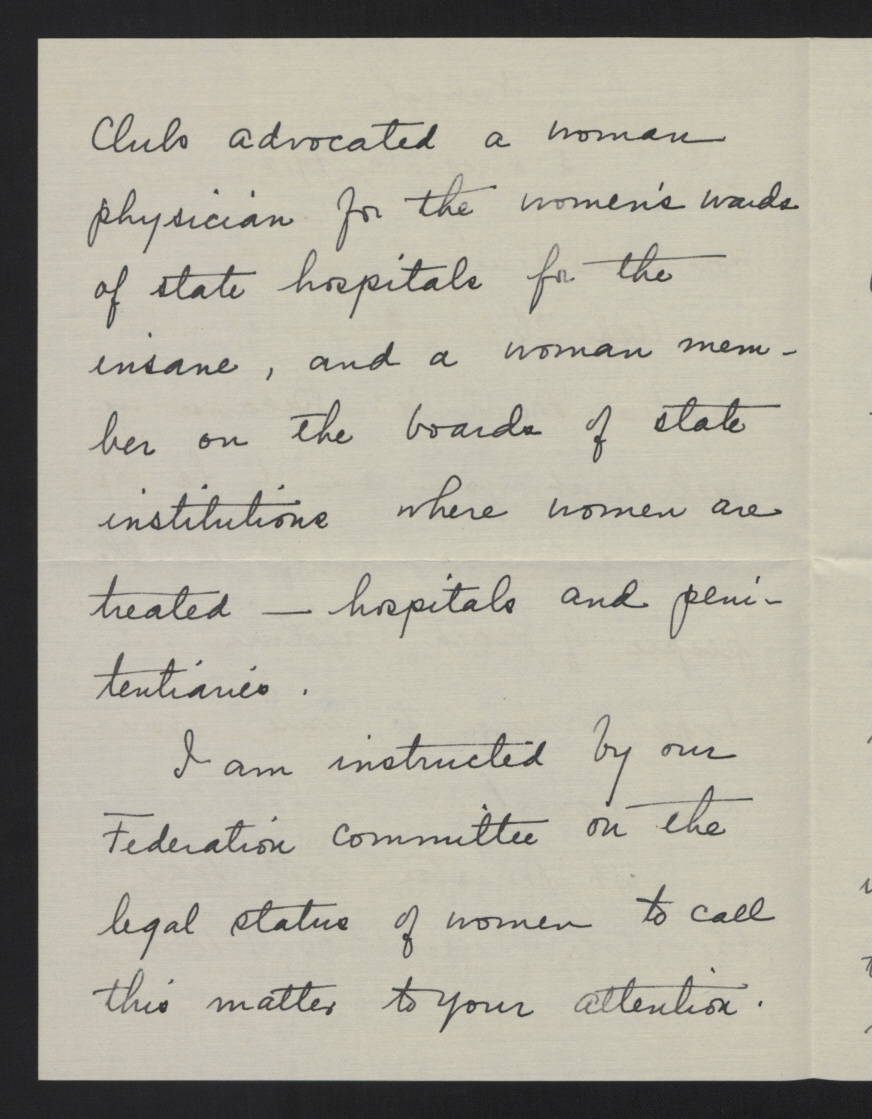 Clubs advocated a woman
physician for the women's wards
of state hospitals for the
insane, and a woman mem-
ber on the boards of state
institutions where women are
treated — hospitals and peni-
tentiaries.
I am instructed by our
Federation Committee on the
legal status of women to call
this matter to your attention.